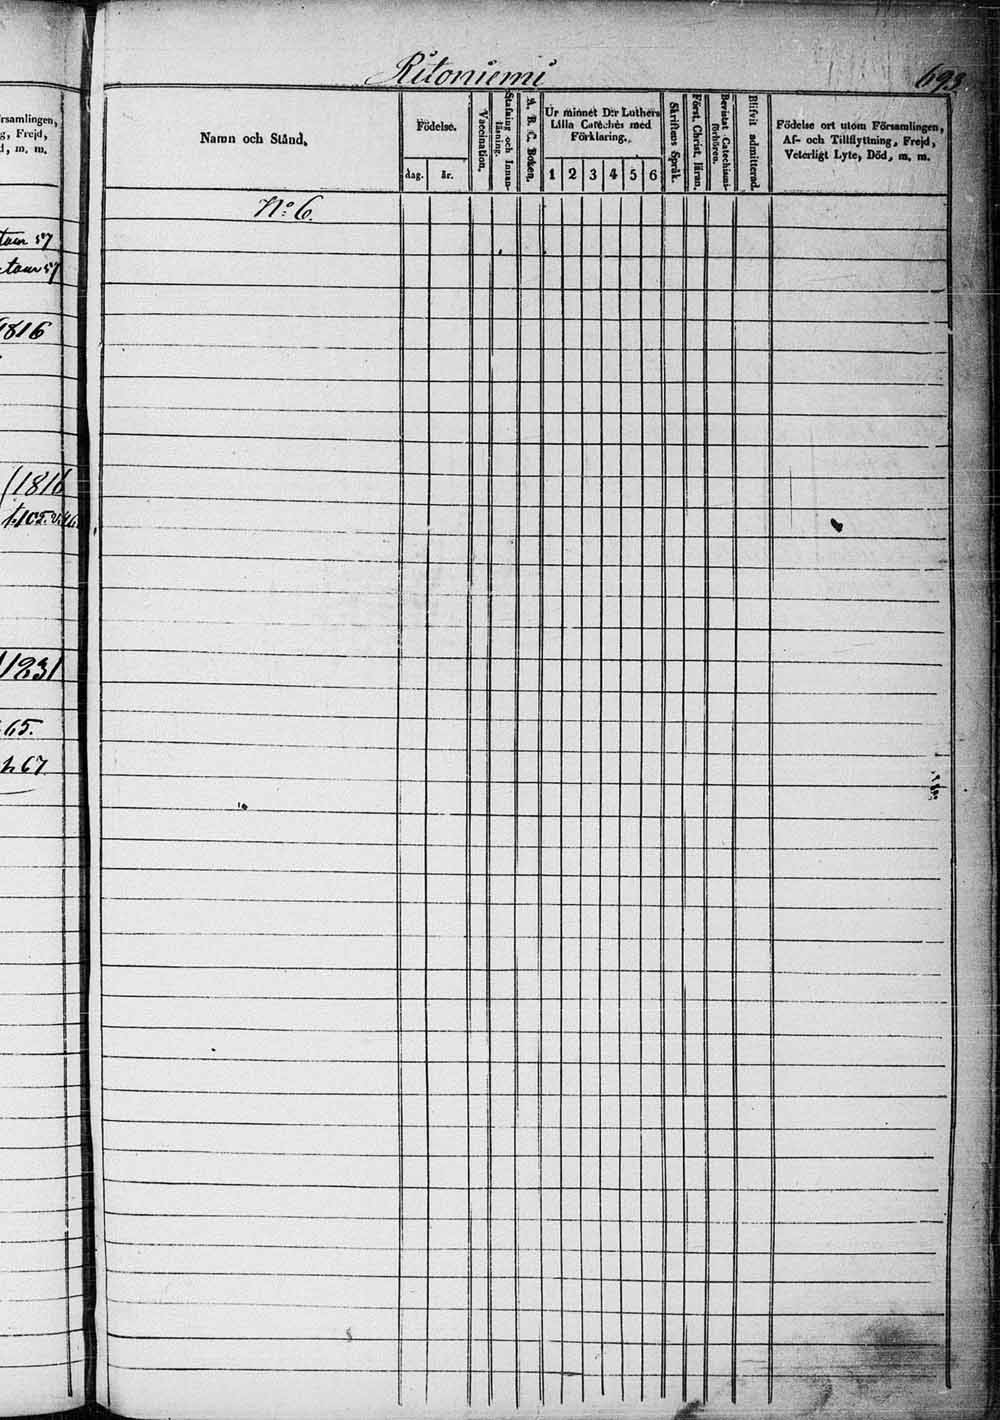 Ritoniemi
693.
rsamlingen,
g, Frejd,
d, m. m.
57
57
1816
(1816
1831
65.
67
Namn och Stånd.
Födelse.
dag. år.
Vaccination.
Stafning och Innanläsning.
A. B. C. Boken.
Ur minnet D:r Luthers
Lilla Cateches med
Förklaring.
1 2 3 4 5 6
Skriftens Språk.
Först. Christ. läran.
Bevistat Catechismi-
förhören.
Blifvit admitterad.
Födelse ort utom Församlingen,
Af- och Tillflyttning, Frejd,
Veterligt Lyte, Död, m. m.
No 6.